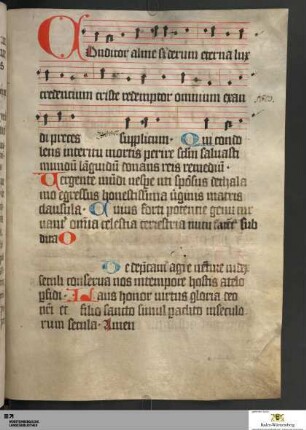 Conditor alme siderum eterna lux
credencium criste redemptor omnium exau
di preces supplicum. Qui condo
lens interitu mortis perire seculum saluasti
mundum languidum donans reis remedium.
Vergente mundi vespere uti sponsus de thala
mo egressus honestissima virginis matris
clausula. Cuius forti potentie genu cur
vantur omnia celestia terrestria nutu fatentur sub
dita
Te deprecamur agie venture iudex
seculi conserua nos in tempore hostis a telo
perfidi. Laus honor virtus gloria deo
patri et filio sancto simul paraclito in seculo
rum secula. Amen